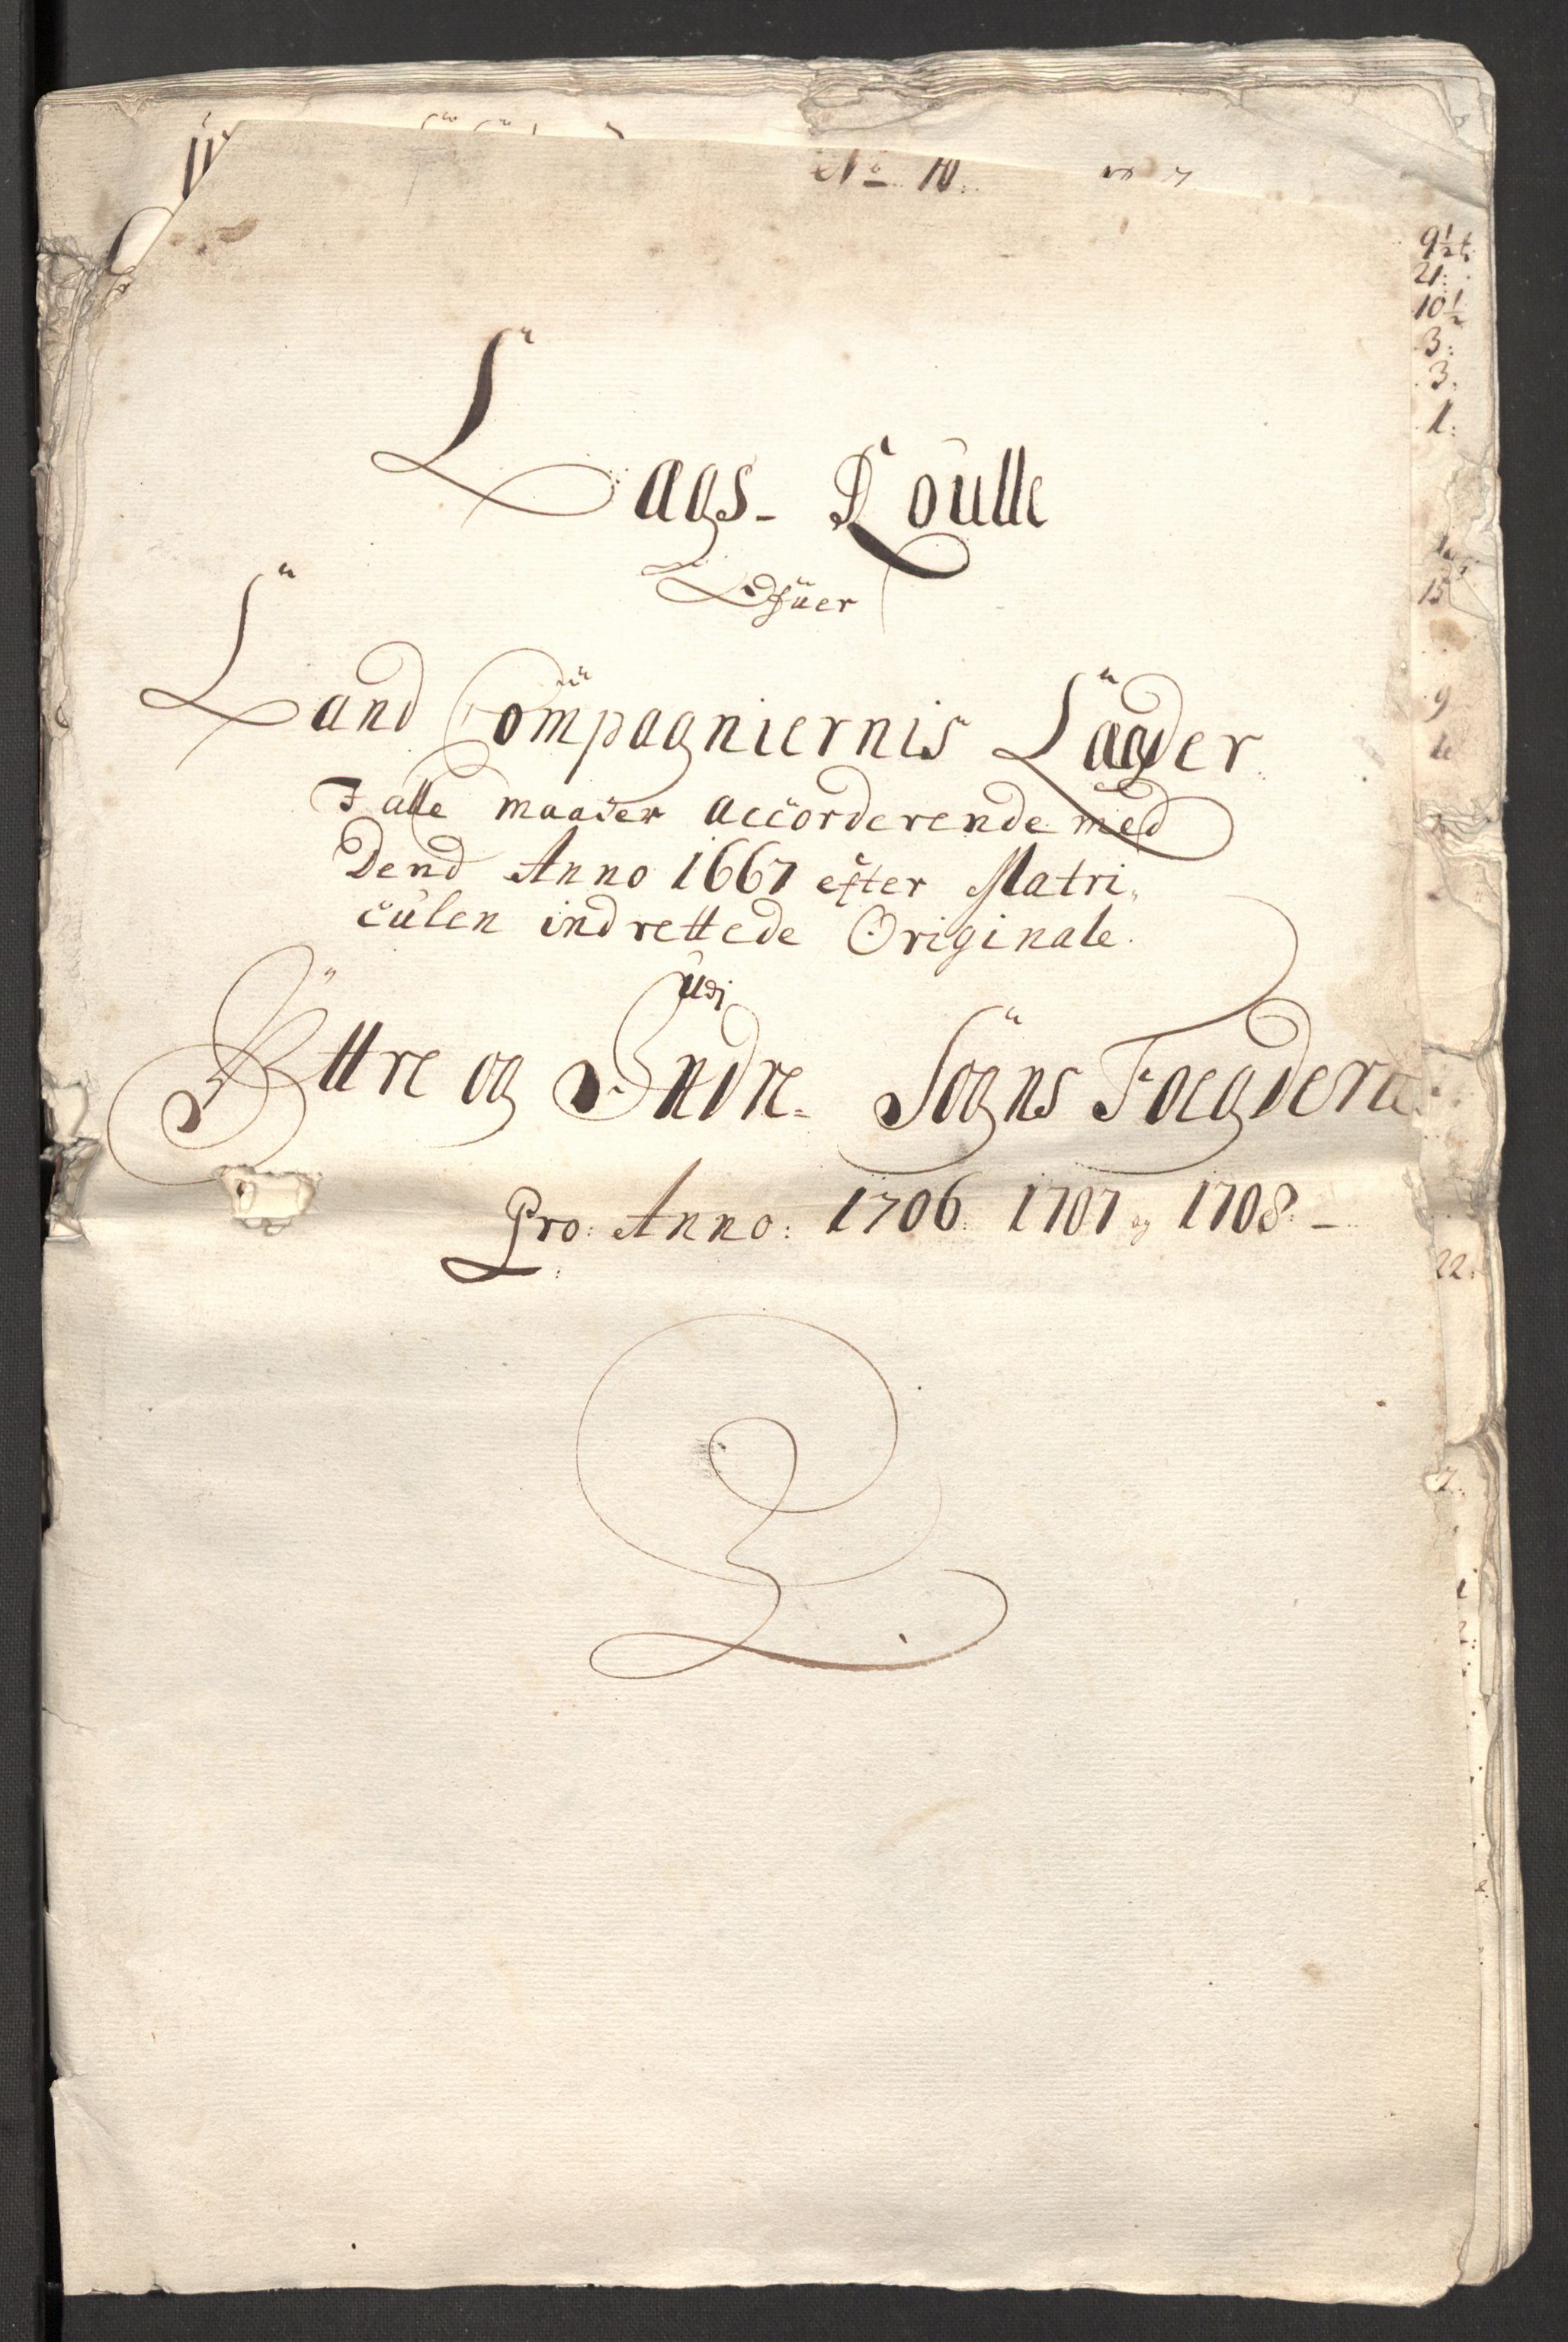 No 10.
Lags- Roulle
Ofuer
Land Compagniernis Lagder
I alle maader accorderende med
Dend Anno 1667 efter Matri„
culen indrettede Originale.
udi
Yttre og Indre- Sogns Foegderie
Pro: Anno: 1706 1707 og 1708 -
9½ t
21:
10½
3:
3.
1:
15
9
22.